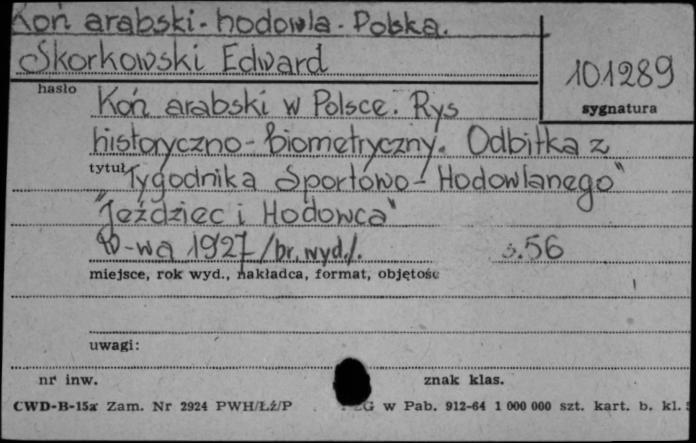 Koń arabski - hodowla - Polska.
Skorkowski Edward
101289
hasło
sygnatura
Koń arabski w Polsce. Rys
historyczno - biometryczny. Odbitka z
tytuł
Tygodnika Sportowo - Hodowlanego"
"Jeździec i Hodowca"
W-wa 1927 /br. wyd./. s. 56
miejsce, rok wyd., nakładca, format, objętość
uwagi:
nr inw. znak klas.
CWD-B-15a Zam. Nr 2924 PWH/Łź/P w Pab. 912-64 1 000 000 szt. kart. b. kl.